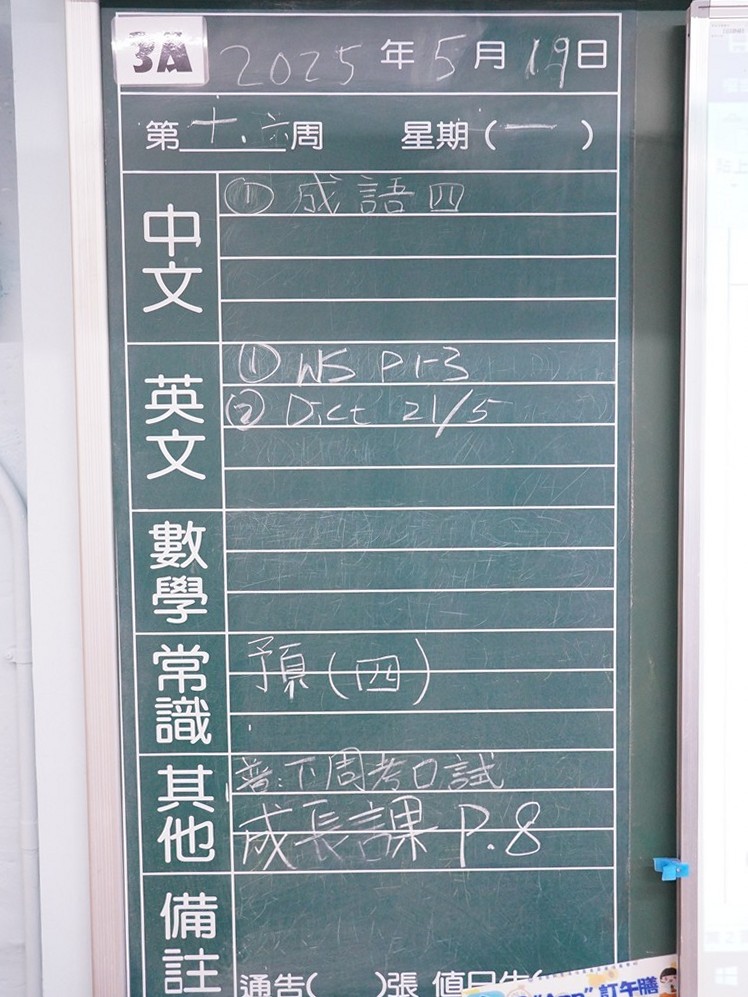 3A 2025年5月19日
第十.六周 星期(一)
中文
① 成語四
英文
① WS P1-3
② Dict 21/5
數學
常識
預(四)
其他
普:下周考口試
成長課 P.8
備註
通告( )張
訂午膳